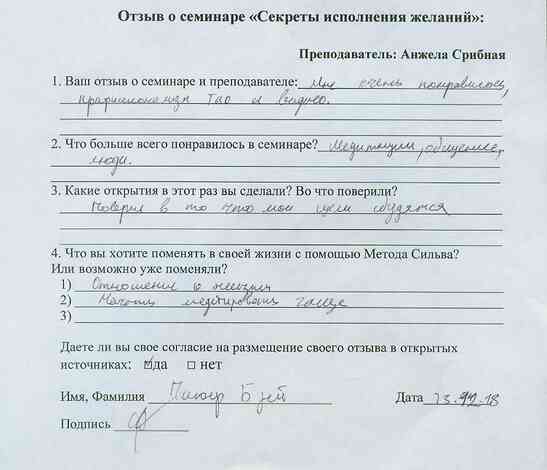 Отзыв о семинаре «Секреты исполнения желаний»:
Преподаватель: Анжела Срибная
1. Ваш отзыв о семинаре и преподавателе: Мне очень понравилось,
2. Что больше всего понравилось в семинаре? Медитации, общение,
люди.
3. Какие открытия в этот раз вы сделали? Во что поверили?
Поверил в то что мои цели сбудятся
4. Что вы хотите поменять в своей жизни с помощью Метода Сильва?
Или возможно уже поменяли?
1) Отношение к жизни
2) Начать медитировать чаще
3)
Даете ли вы свое согласие на размещение своего отзыва в открытых
источниках: да нет
Имя, Фамилия
Дата
Подпись